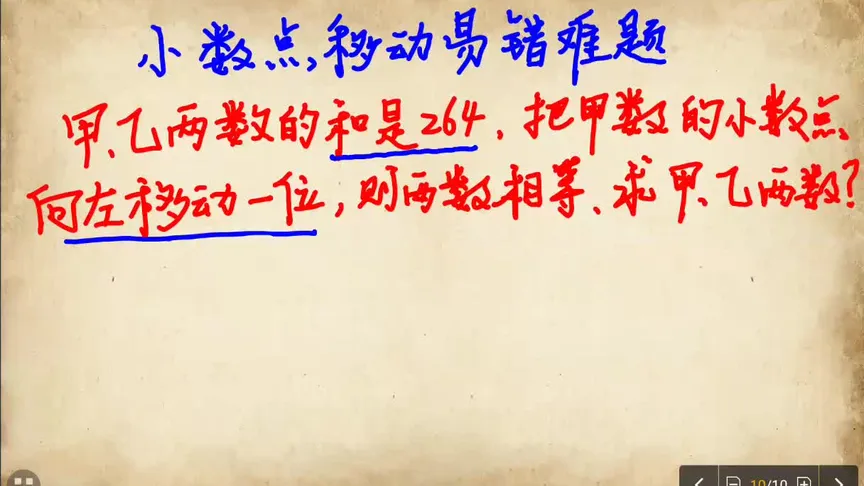 小数点移动易错难题
甲、乙两数的和是264，把甲数的小数点
向左移动一位，则两数相等、求甲、乙两数？
10/10